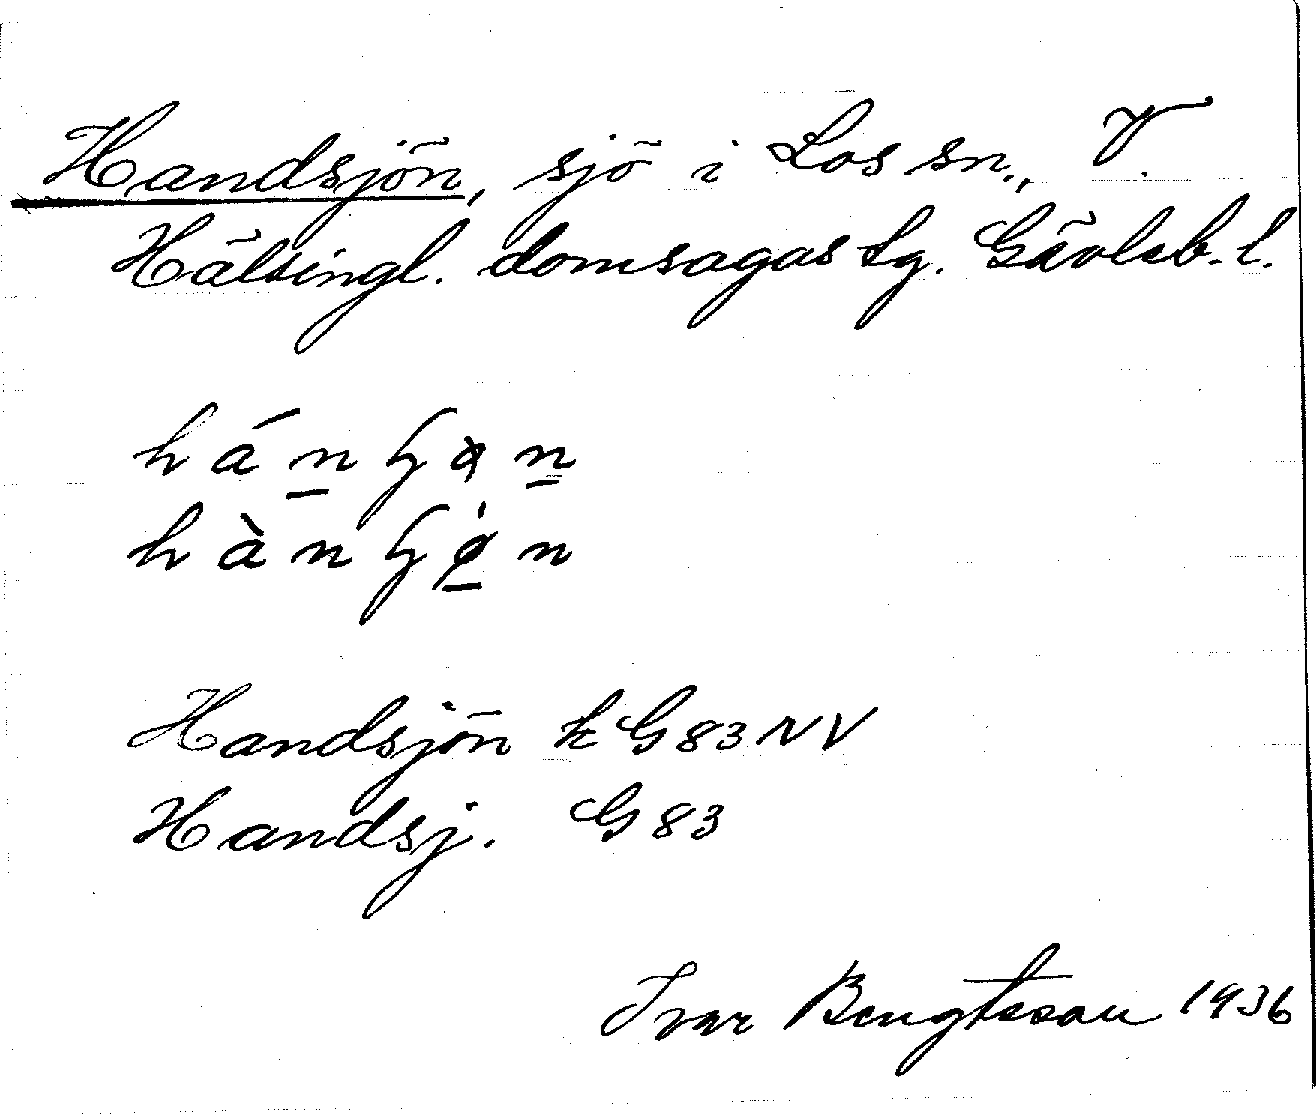 Handsjön, sjö i Los sn., V.
Hälsingl. domsagas tg. Gävleb. l.
Handsjön k G 83 NV
Handsj. G 83
Ivar Bengtsson 1936